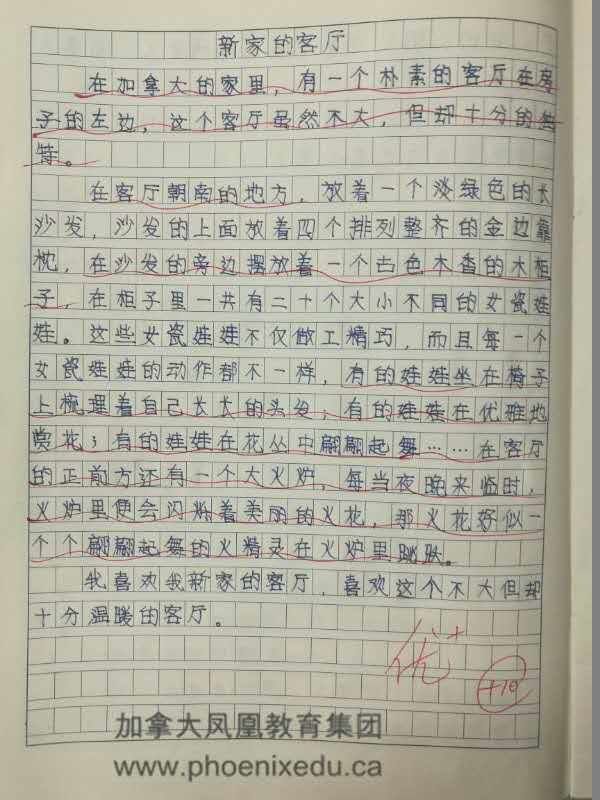 新家的客厅
在加拿大的家里，有一个朴素的客厅在房
子的左边，这个客厅虽然不大，但却十分的独
特。
在客厅朝南的地方，放着一个淡绿色的长
沙发，沙发的上面放着四个排列整齐的金边靠
枕，在沙发的旁边摆放着一个古色木香的木柜
子，在柜子里一共有二十个大小不同的女瓷娃
娃。这些女瓷娃娃不仅做工精巧，而且每一个
女瓷娃娃的动作都不一样，有的娃娃坐在椅子
上梳理着自己长长的头发；有的娃娃在优雅地
赏花；有的娃娃在花丛中翩翩起舞……在客厅
的正前方还有一个大火炉，每当夜晚来临时，
火炉里便会闪烁着美丽的火花，那火花好似一
个个翩翩起舞的火精灵在火炉里跳跃。
我喜欢我新家的客厅，喜欢这个不大但却
十分温暖的客厅。
优+
+10
加拿大凤凰教育集团
www.phoenixedu.ca